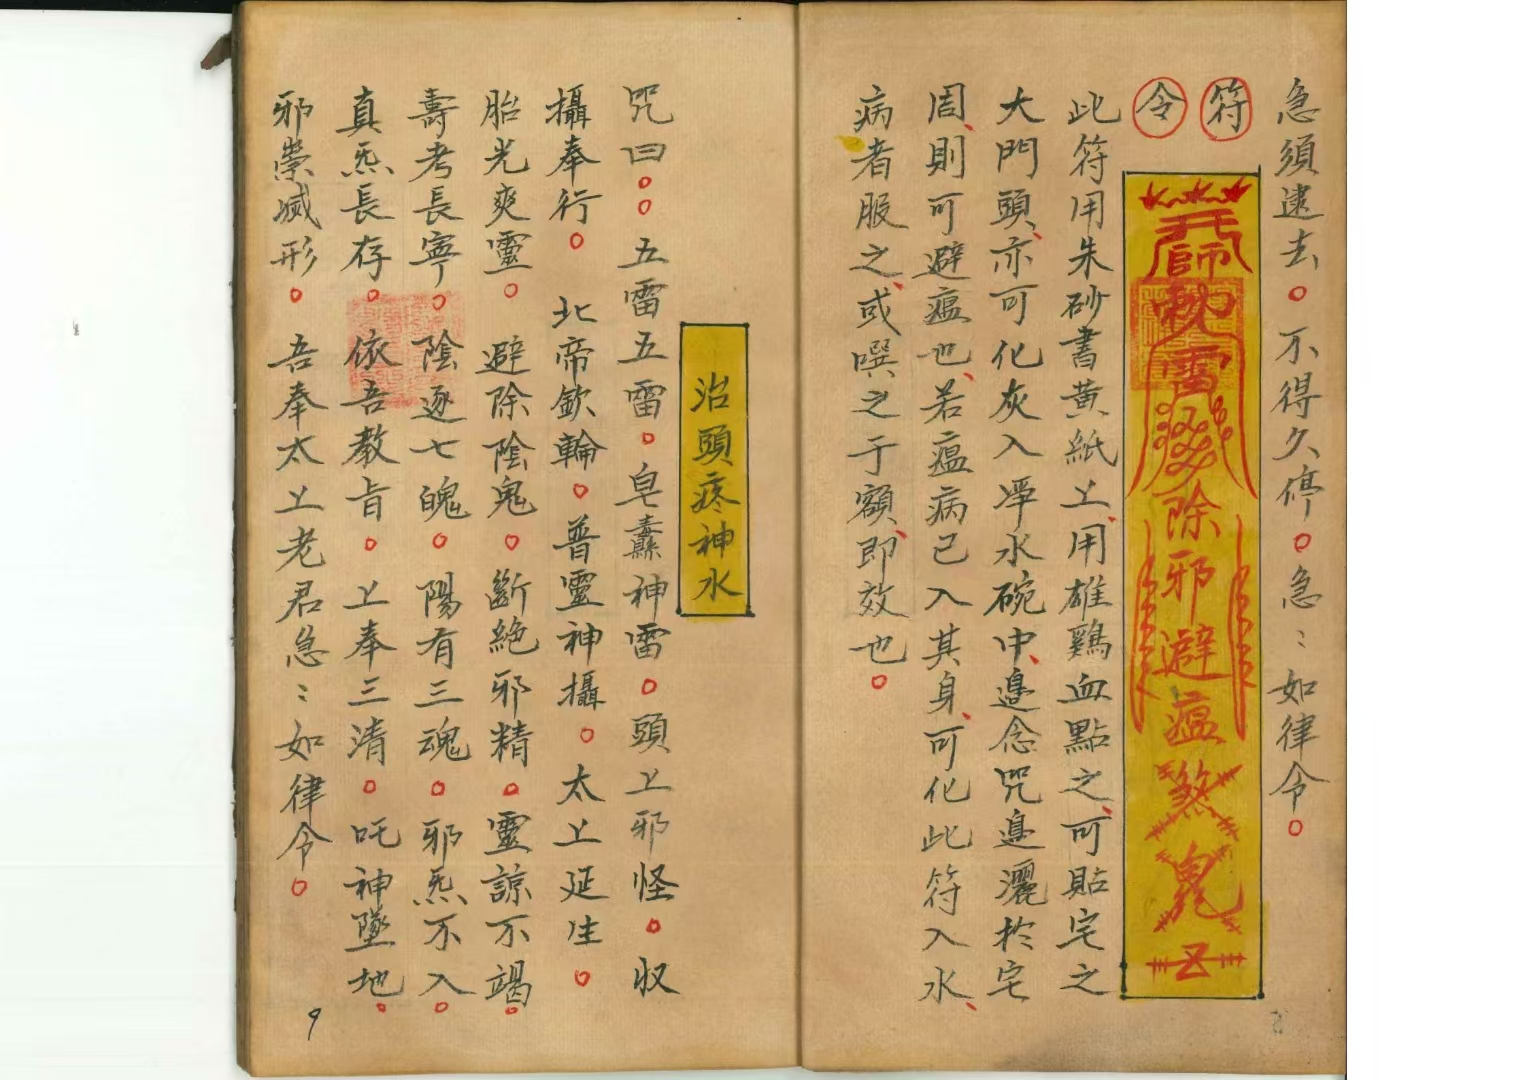 急須逮去。不得久停。急〻如律令。
符令
天師敕雷 除邪避瘟煞鬼
此符用朱砂書黃紙上、用雄鷄血點之、可貼宅之
大門頭、亦可化灰入淨水碗中、邊念咒邊灑於宅
周、則可避瘟也、若瘟病已入其身、可化此符入水、
病者服之、或噀之于額、即效也。
治頭疼神水
咒曰。。五雷五雷。皂纛神雷。頭上邪怪。収
攝奉行。北帝欽輪。普靈神攝。太上延生。
胎光爽靈。避除陰鬼。斷絶邪精。靈諒不竭。
壽考長寧。陰逐七魄。陽有三魂。邪炁不入。
真炁長存。依吾教旨。上奉三清。吒神墜地。
邪祟滅形。吾奉太上老君急〻如律令。
9